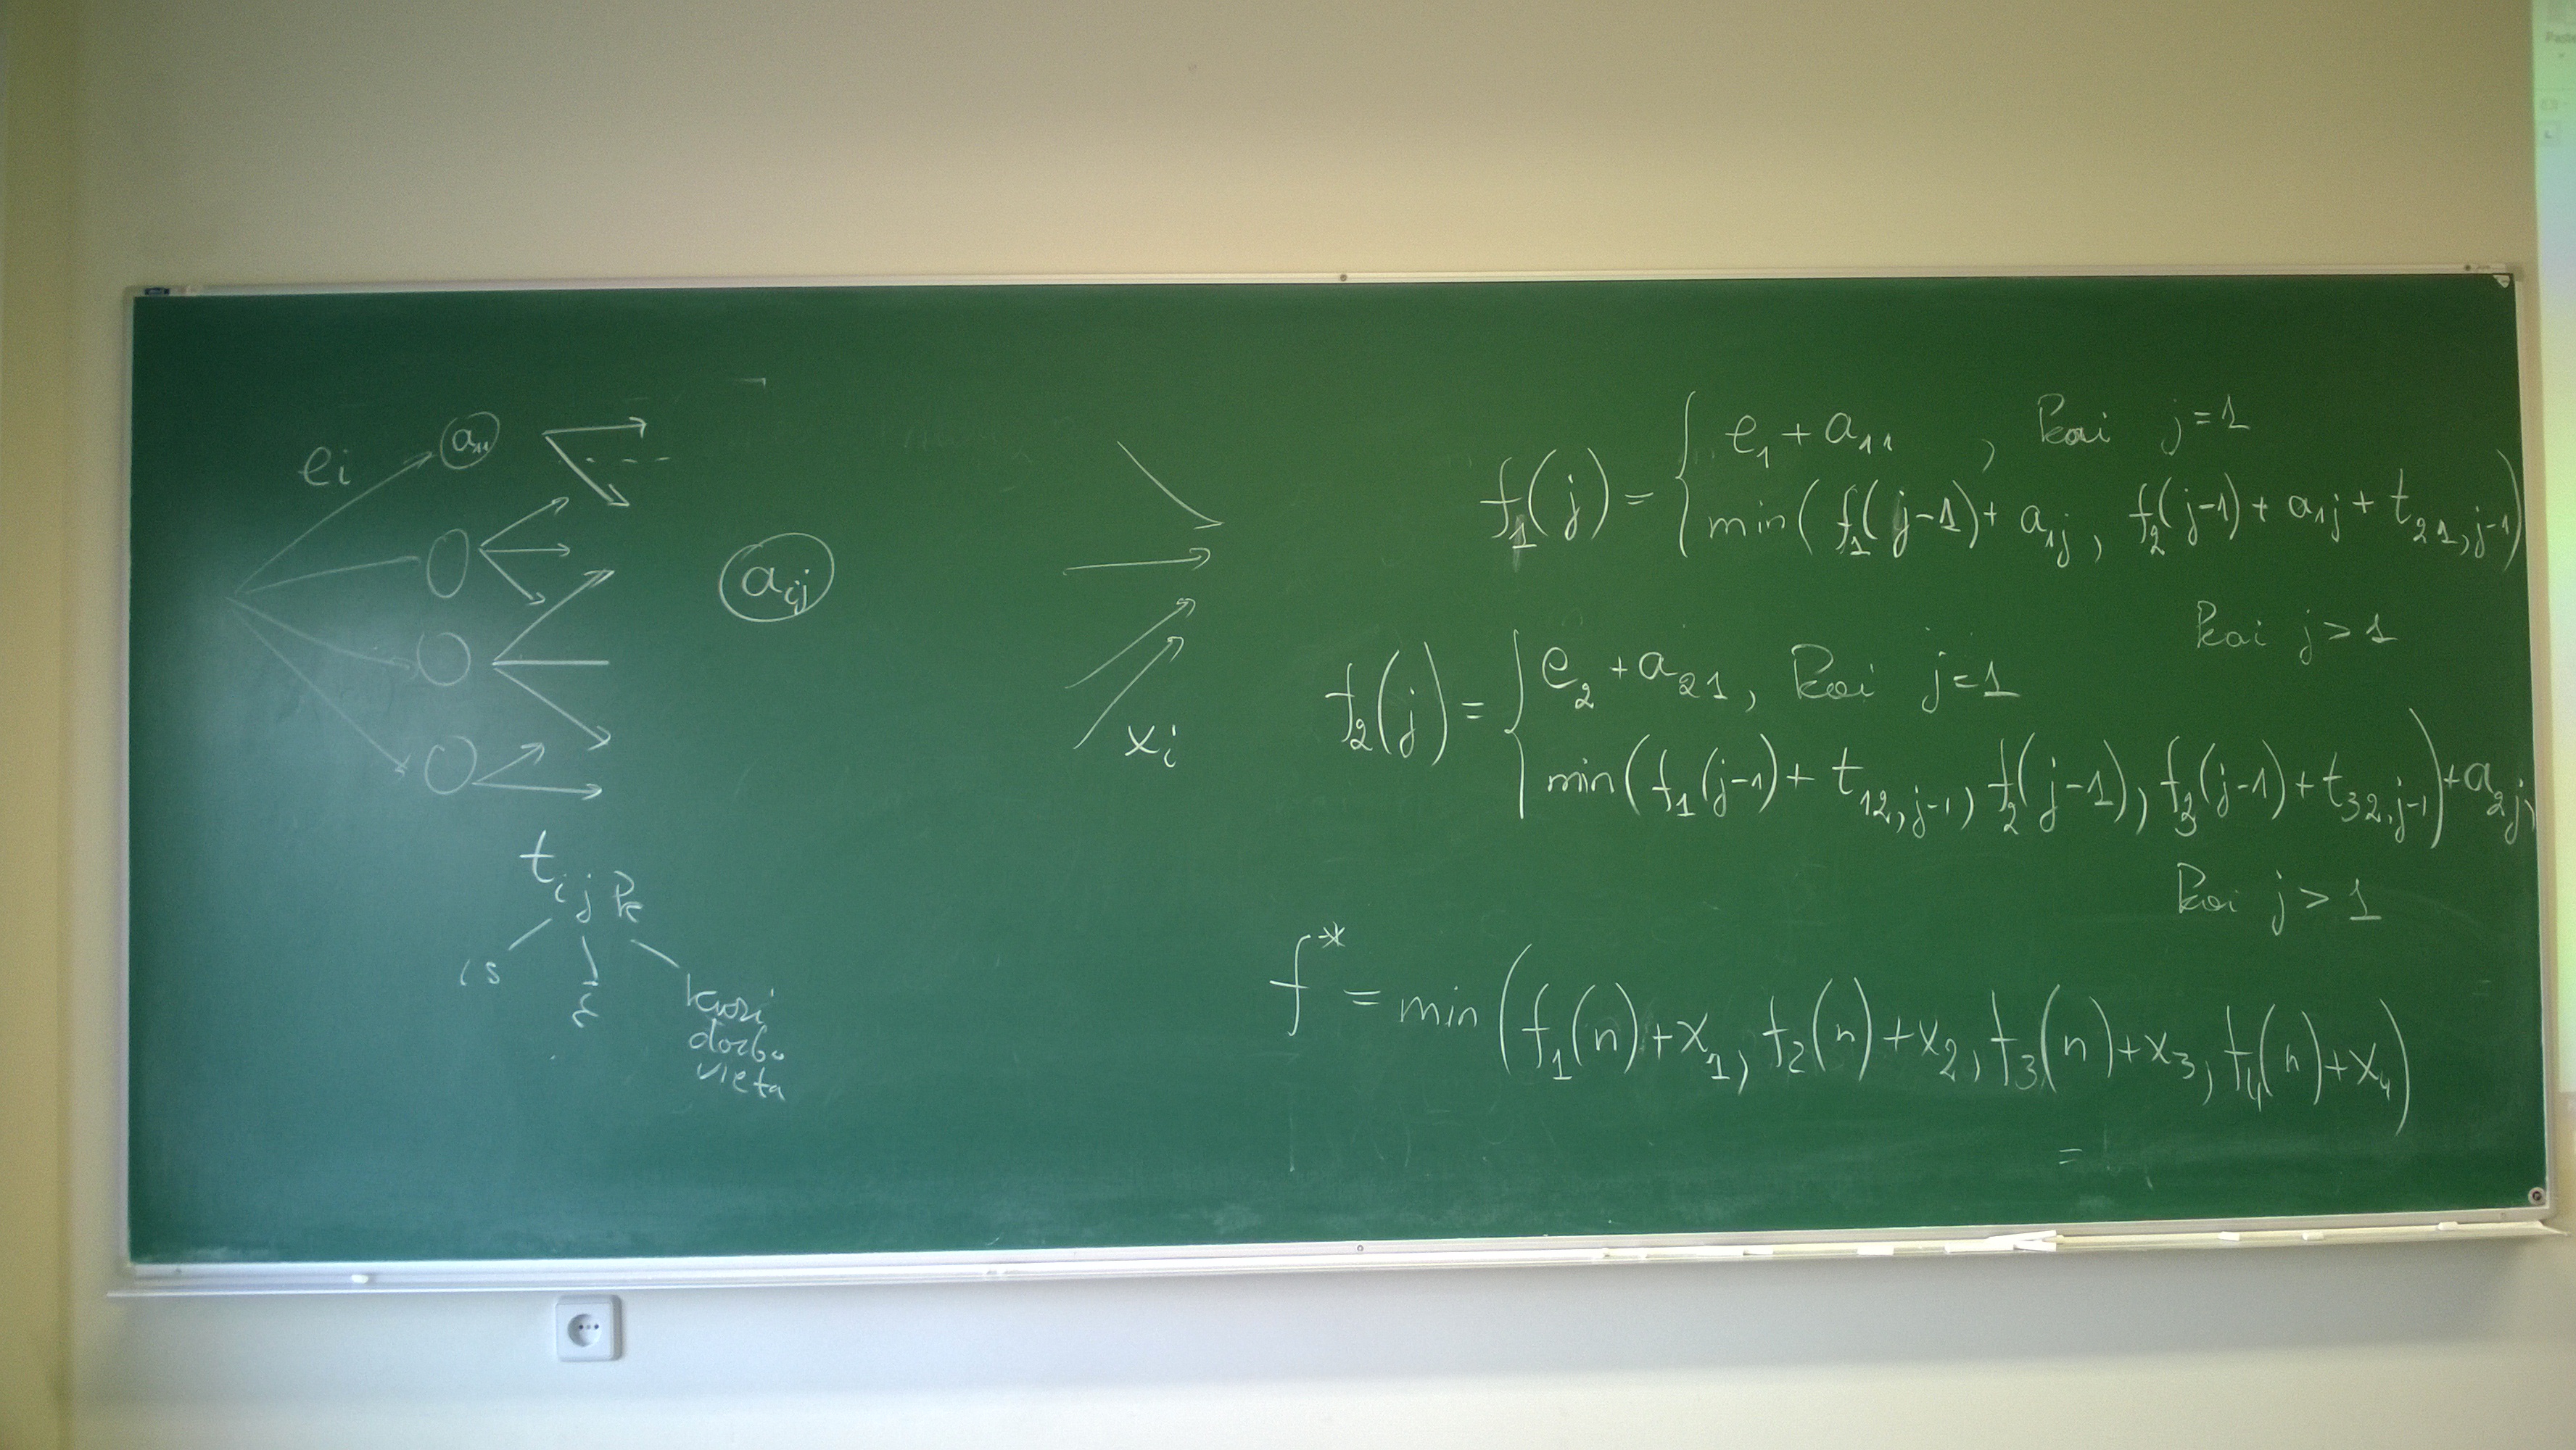 eᵢ
a₁₁
aᵢⱼ
xᵢ
tᵢⱼₖ
iš
į
kuri
darbo
vieta
f₁(j) = { e₁ + a₁₁, kai j=1
min(f₁(j-1) + a₁ⱼ, f₂(j-1) + a₁ⱼ + t₂₁,ⱼ₋₁)
kai j > 1
f₂(j) = { e₂ + a₂₁, kai j=1
min(f₁(j-1) + t₁₂,ⱼ₋₁, f₂(j-1), f₃(j-1) + t₃₂,ⱼ₋₁) + a₂ⱼ,
kai j > 1
f* = min(f₁(n)+x₁, f₂(n)+x₂, f₃(n)+x₃, f₄(n)+x₄)
=